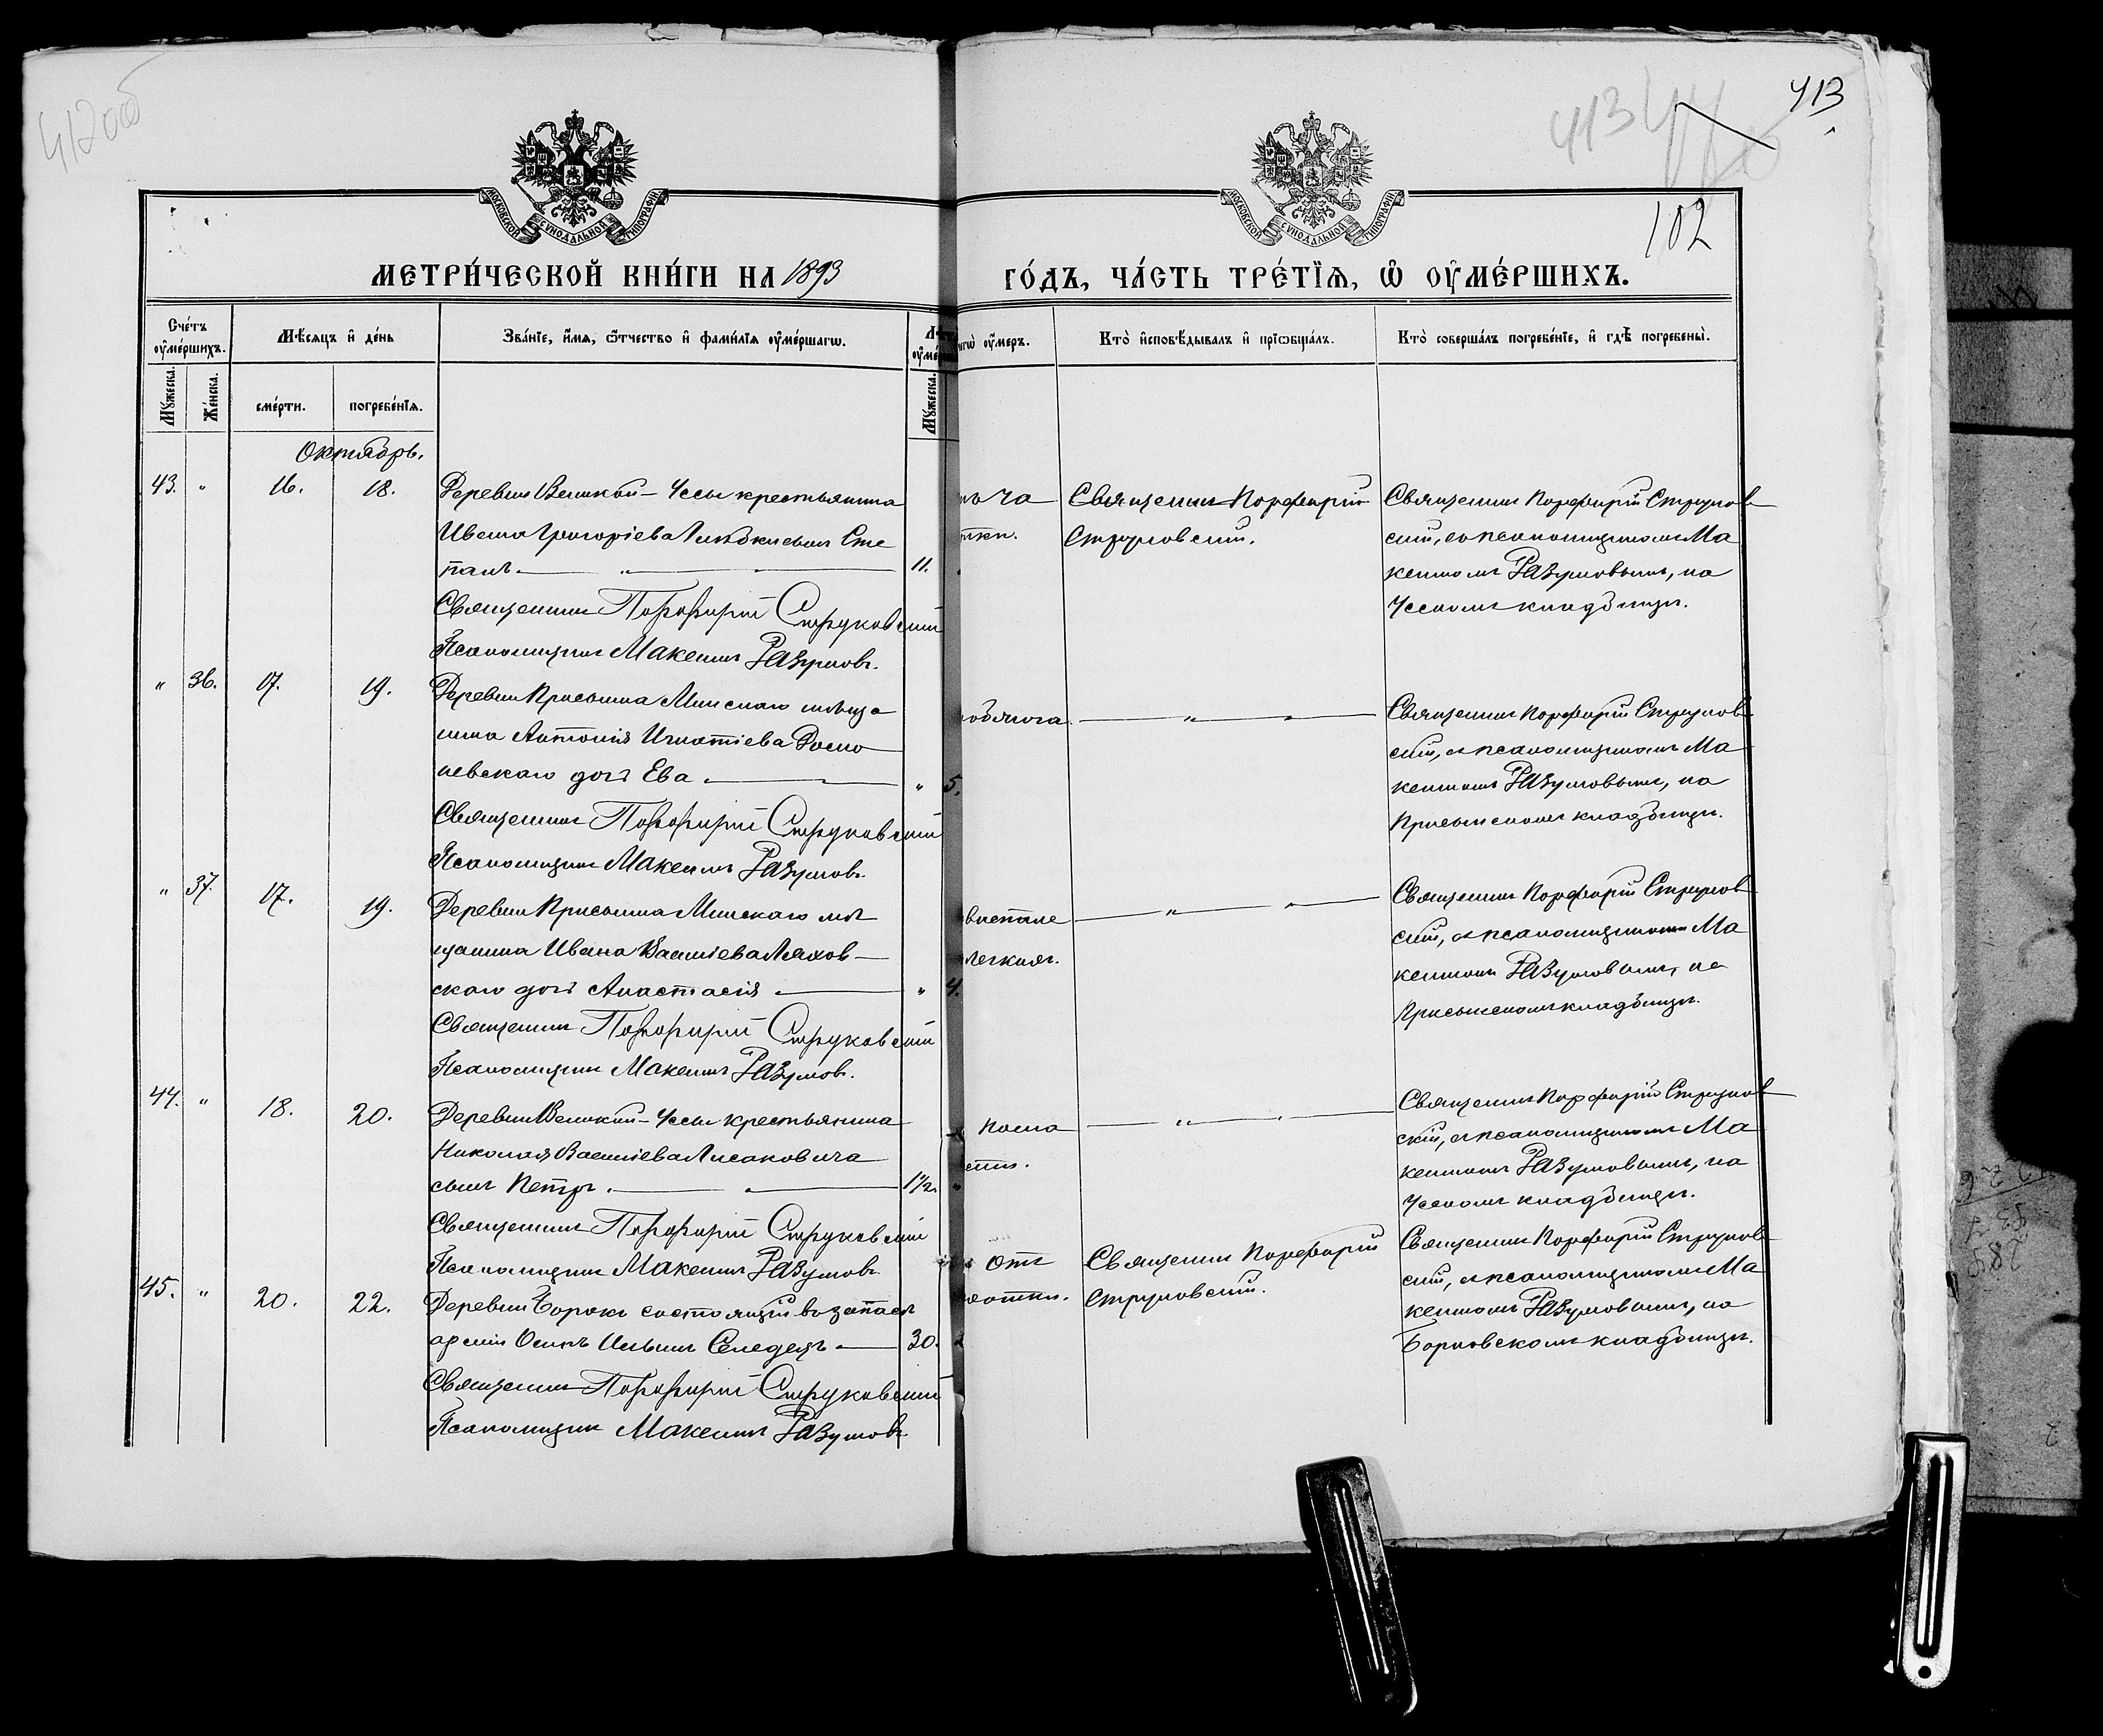 412 об
413
413
102
МОСКОВСКОЙ СѴНОДАЛЬНОЙ ТИПОГРАФІИ
МОСКОВСКОЙ СѴНОДАЛЬНОЙ ТИПОГРАФІИ
МЕТРИ́ЧЕСКОЙ КНИ́ГИ НА 1893
ГО́ДЪ, ЧА́СТЬ ТРЕ́ТЇЯ, Ѡ ОУМЕ́РШИХЪ.
Сче́тъ оуме́ршихъ.
Мѣ́сяцъ и де́нь
Зва́нїе, и́мя, ѿчество и фами́лїя оуме́ршагѡ.
оу́меръ.
Кто̀ исповѣ́дывалъ и прїѡбща́лъ.
Кто̀ соверша́лъ погребе́нїе, и гдѣ̀ погребены̀.
Мꙋ́жеска.
Же́нска.
сме́рти.
погребе́нїя.
Мꙋ́жеска.
Октябрь.
43. " 16. 18. Деревни Великой-Уссы крестьянина
Ивана Григоріева сынъ Сте
панъ 11.
Священникъ Порфирій Струковскій
Псаломщикъ Максимъ Разумовъ.
Священникъ Порфирій
Струковскій.
Священникъ Порфирій Струков
скій, съ псаломщикомъ Ма
ксимомъ Разумовымъ, на
Усскомъ кладбищѣ.
" 36. 17. 19. Деревни Присынка Минскаго мѣща
нина Антонія Игнатіева Домо
невскаго дочь Ева " 5.
Священникъ Порфирій Струковскій
Псаломщикъ Максимъ Разумовъ.
Священникъ Порфирій Струков
скій, съ псаломщикомъ Ма
ксимомъ Разумовымъ, на
Присынскомъ кладбищѣ.
" 37. 17. 19. Деревни Присынка Минскаго мѣ
щанина Ивана Василіева Ляхов
скаго дочь Анастасія " 4.
Священникъ Порфирій Струковскій
Псаломщикъ Максимъ Разумовъ.
воспале
легкихъ.
Священникъ Порфирій Струков
скій, съ псаломщикомъ Ма
ксимомъ Разумовымъ, на
Присынскомъ кладбищѣ.
44. " 18. 20. Деревни Великой-Уссы крестьянина
Николая Василіева Лисаковича
сынъ Петръ. 1 1/2.
Священникъ Порфирій Струковскій
Псаломщикъ Максимъ Разумовъ.
Священникъ Порфирій Струков
скій, съ псаломщикомъ Ма
ксимомъ Разумовымъ, на
Усскомъ кладбищѣ.
45. " 20. 22. Деревни Борокъ состоящій въ запасѣ
арміи Осипъ Ильинъ Селедецъ 30.
Священникъ Порфирій Струковскій
Псаломщикъ Максимъ Разумовъ.
отъ
Священникъ Порфирій
Струковскій.
Священникъ Порфирій Струков
скій, съ псаломщикомъ Ма
ксимомъ Разумовымъ, на
Борковскомъ кладбищѣ.